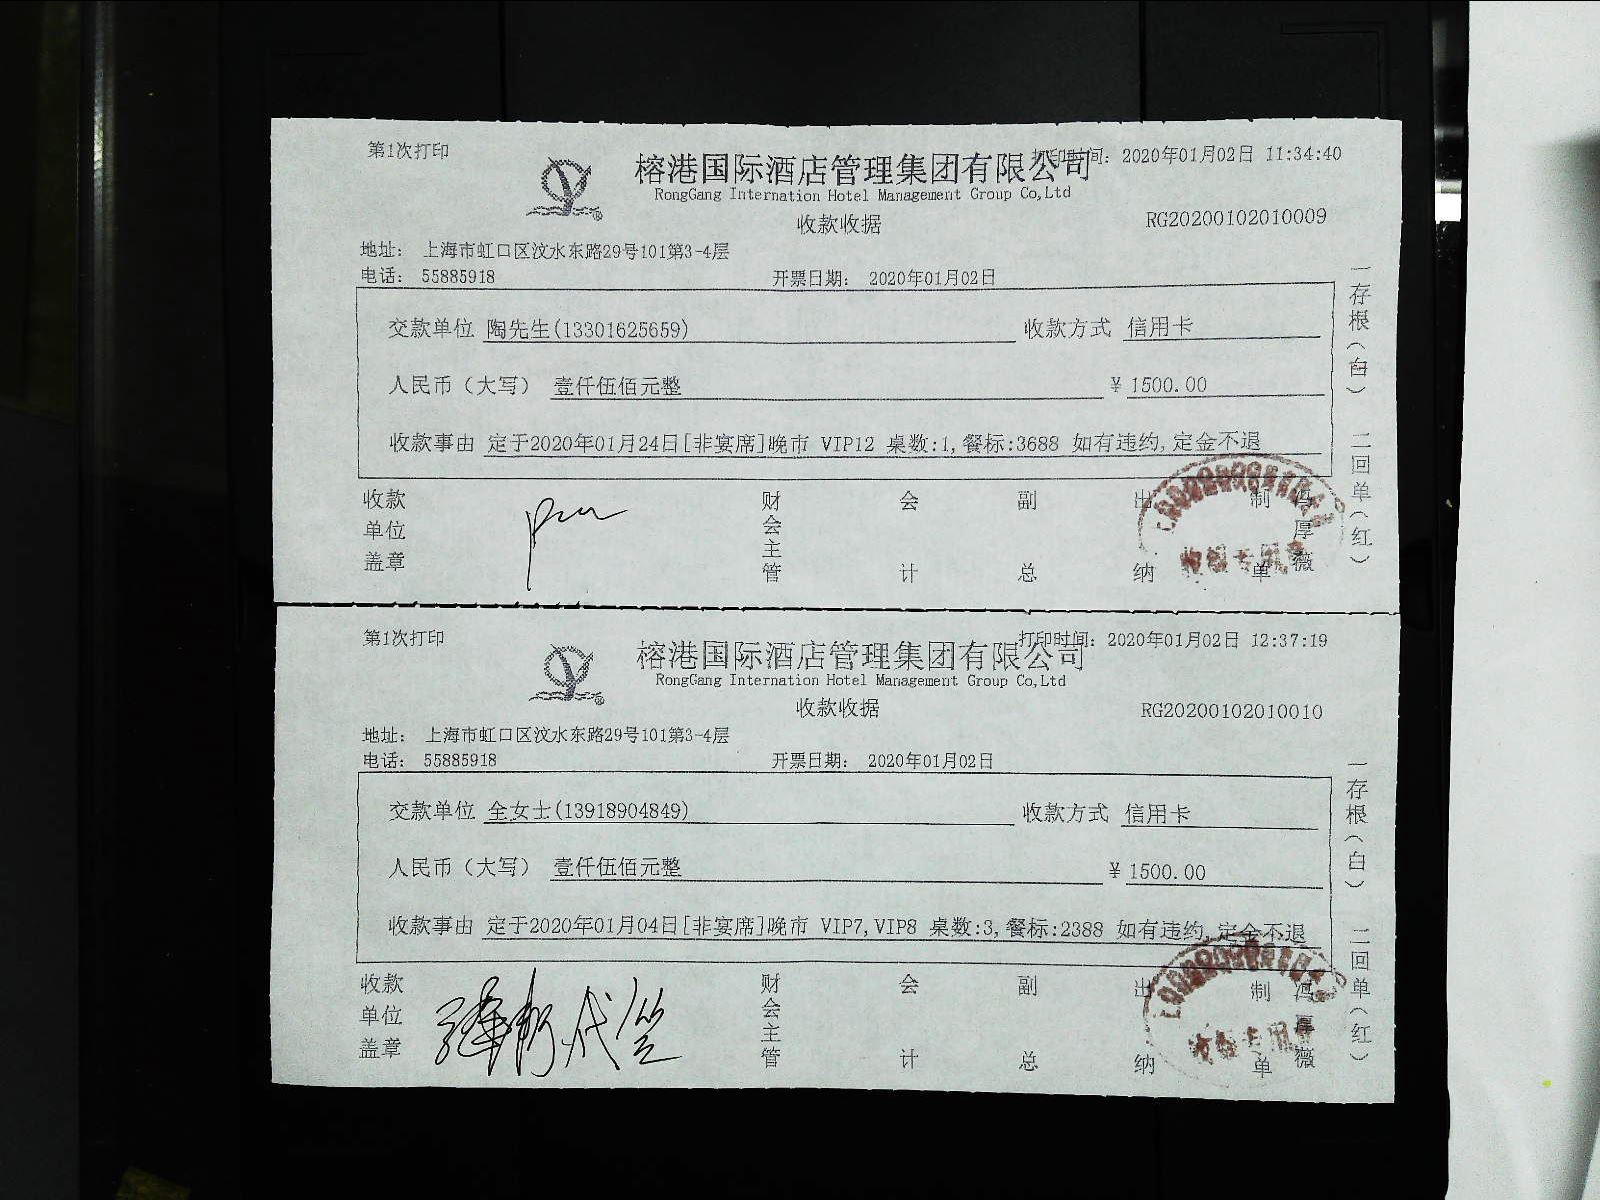 第1次打印
榕港国际酒店管理集团有限公司
打印时间: 2020年01月02日 11:34:40
RongGang Internation Hotel Management Group Co,Ltd
收款收据
RG20200102010009
地址: 上海市虹口区汶水东路29号101第3-4层
电话: 55885918 开票日期: 2020年01月02日
交款单位 陶先生(13301625659) 收款方式 信用卡
人民币(大写) 壹仟伍佰元整 ¥ 1500.00
收款事由 定于2020年01月24日[非宴席]晚市 VIP12 桌数:1,餐标:3688 如有违约,定金不退
一存根(白) 二回单(红)
收款单位盖章
财会主管
会计
副总
出纳
制单
冯厚薇
第1次打印
榕港国际酒店管理集团有限公司
打印时间: 2020年01月02日 12:37:19
RongGang Internation Hotel Management Group Co,Ltd
收款收据
RG20200102010010
地址: 上海市虹口区汶水东路29号101第3-4层
电话: 55885918 开票日期: 2020年01月02日
交款单位 全女士(13918904849) 收款方式 信用卡
人民币(大写) 壹仟伍佰元整 ¥ 1500.00
收款事由 定于2020年01月04日[非宴席]晚市 VIP7,VIP8 桌数:3,餐标:2388 如有违约,定金不退
一存根(白) 二回单(红)
收款单位盖章
代签
财会主管
会计
副总
出纳
制单
冯厚薇